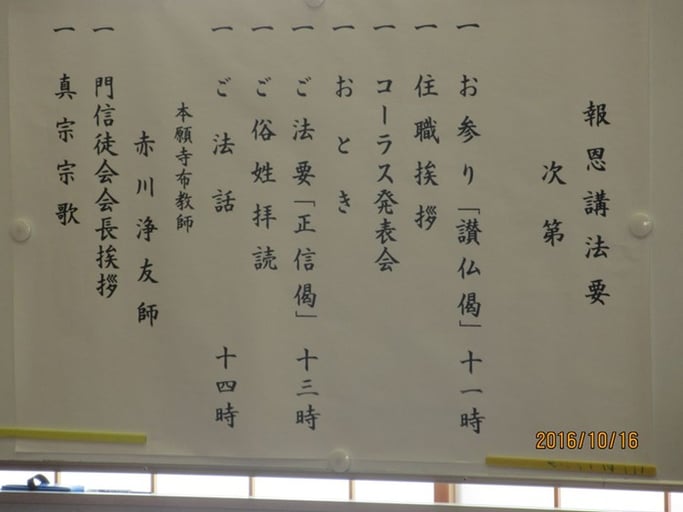 報恩講法要
次第
一 お参り「讃仏偈」 十一時
一 住職挨拶
一 コーラス発表会
一 おとき
一 ご法要「正信偈」 十三時
一 ご俗姓拝読
一 ご法話 十四時
本願寺布教師
赤川浄友師
一 門信徒会会長挨拶
一 真宗宗歌
2016/10/16